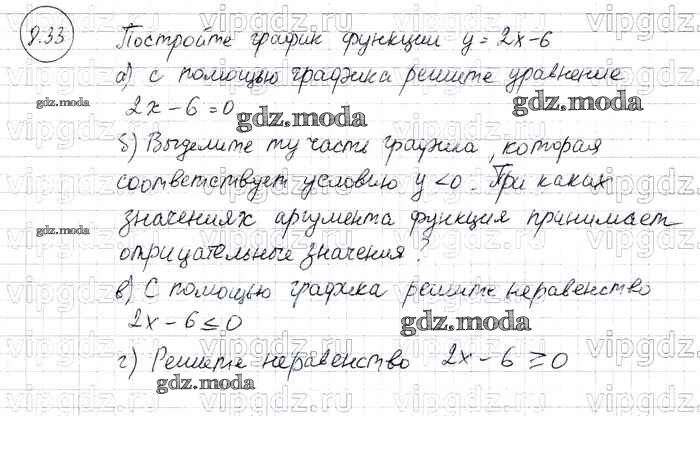 8.33
Постройте график функции y = 2x - 6
а) с помощью графика решите уравнение
2x - 6 = 0
б) Выделите ту часть графика, которая
соответствует условию y < 0. При каких
значениях аргумента функция принимает
отрицательные значения?
в) С помощью графика решите неравенство
2x - 6 ≤ 0
г) Решите неравенство 2x - 6 ≥ 0
gdz.moda
gdz.moda
gdz.moda
gdz.moda
gdz.moda
gdz.moda
vipgdz